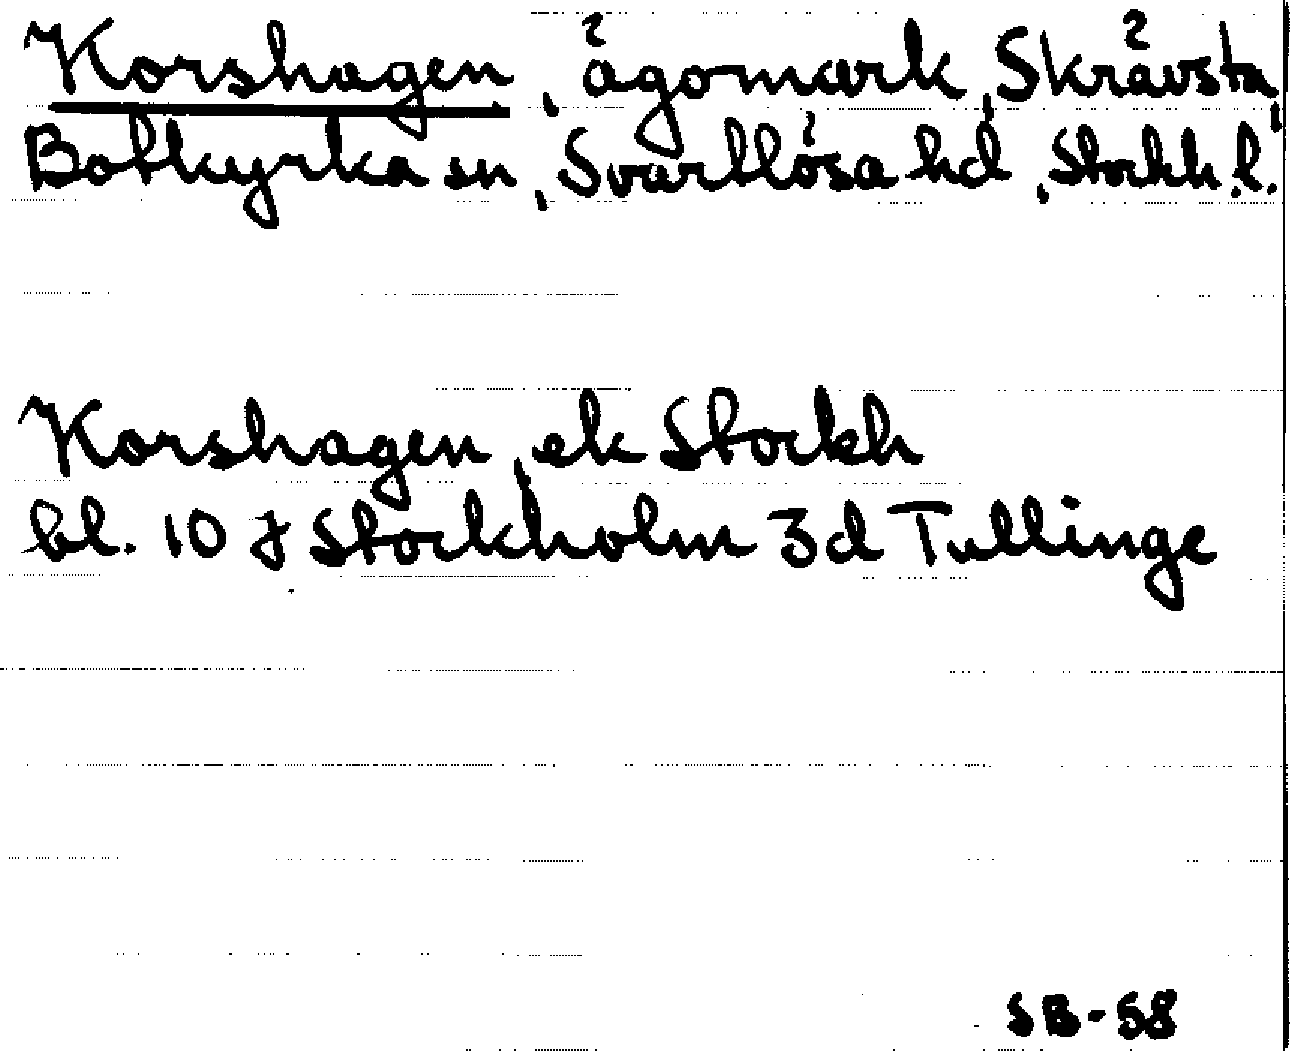 Korshagen, ägomark, Skrävsta,
Botkyrka sn, Svartlösa hd, Stockh. l.
Korshagen, ek Stockh
bl. 10 J Stockholm 3d Tullinge
SB-58